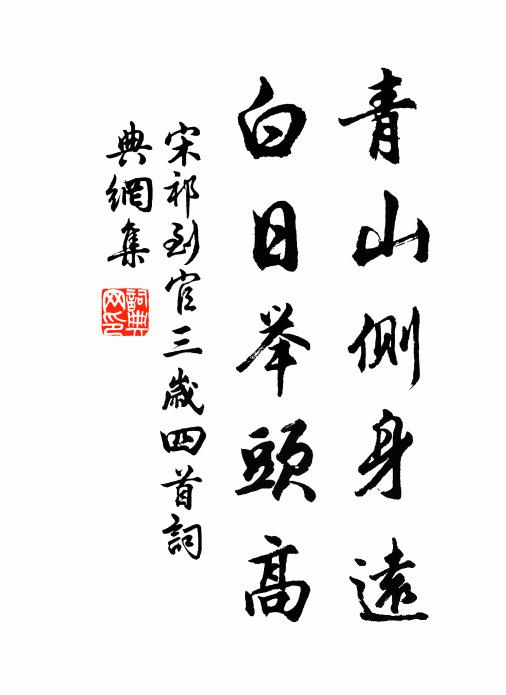 青山側身遠
白日举頭高
宋祁到官三歲四首詞
典網集
詞典
网印